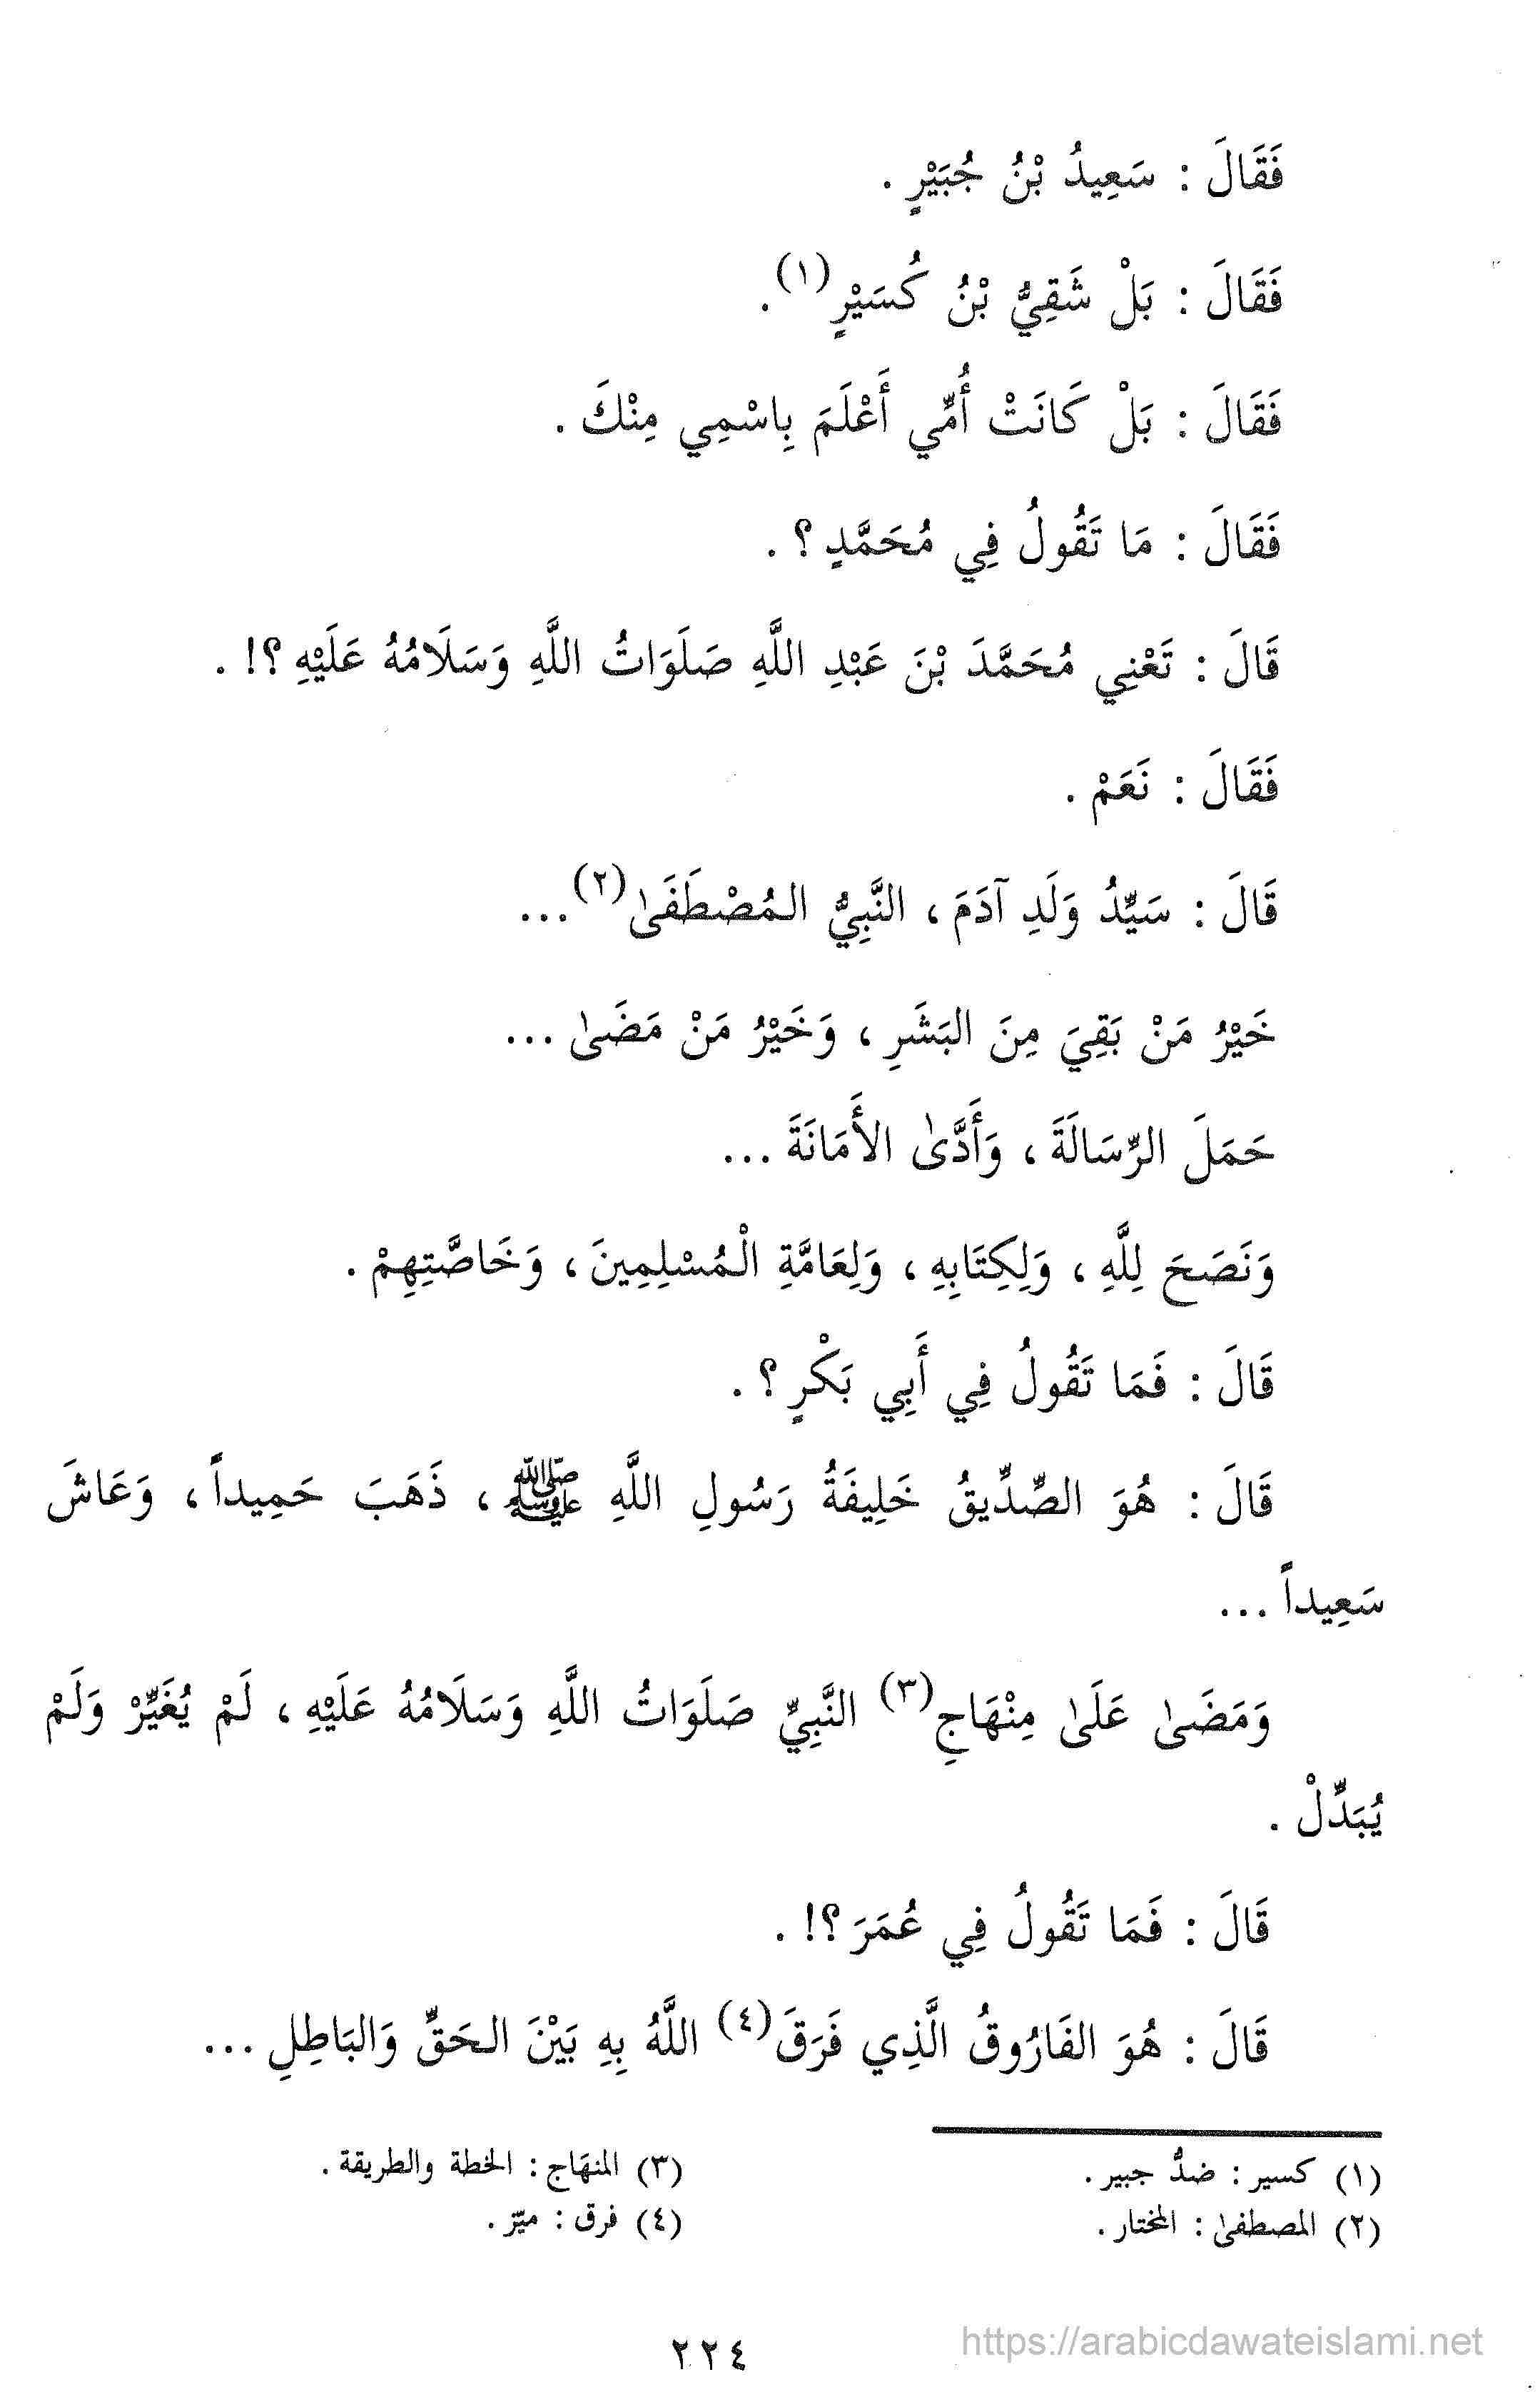 فَقَالَ : سَعِيدُ بْنُ جُبَيْرٍ .
فَقَالَ : بَلْ شَقِيُّ بْنُ كُسَيْرٍ(١) .
فَقَالَ : بَلْ كَانَتْ أُمِّي أَعْلَمَ بِاسْمِي مِنْكَ .
فَقَالَ : مَا تَقُولُ فِي مُحَمَّدٍ ؟ .
قَالَ : تَعْنِي مُحَمَّدَ بْنَ عَبْدِ اللَّهِ صَلَوَاتُ اللَّهِ وَسَلَامُهُ عَلَيْهِ ؟! .
فَقَالَ : نَعَمْ .
قَالَ : سَيِّدُ وَلَدِ آدَمَ ، النَّبِيُّ الـمُصْطَفَىٰ(٢) ...
خَيْرُ مَنْ بَقِيَ مِنَ البَشَرِ ، وَخَيْرُ مَنْ مَضَىٰ ...
حَمَلَ الرِّسَالَةَ ، وَأَدَّىٰ الأَمَانَةَ ...
وَنَصَحَ لِلَّهِ ، وَلِكِتَابِهِ ، وَلِعَامَّةِ الْـمُسْلِمِينَ ، وَخَاصَّتِهِمْ .
قَالَ : فَمَا تَقُولُ فِي أَبِي بَكْرٍ ؟ .
قَالَ : هُوَ الصِّدِّيقُ خَلِيفَةُ رَسُولِ اللَّهِ ﷺ ، ذَهَبَ حَمِيداً ، وَعَاشَ
سَعِيداً ...
وَمَضَىٰ عَلَىٰ مِنْهَاجِ(٣) النَّبِيِّ صَلَوَاتُ اللَّهِ وَسَلَامُهُ عَلَيْهِ ، لَمْ يُغَيِّرْ وَلَمْ
يُبَدِّلْ .
قَالَ : فَمَا تَقُولُ فِي عُمَرَ ؟! .
قَالَ : هُوَ الفَارُوقُ الَّذِي فَرَقَ(٤) اللَّهُ بِهِ بَيْنَ الـحَقِّ وَالبَاطِلِ ...
(١) كسير : ضدُّ جبير .
(٢) المصطفىٰ : المختار .
(٣) المنهَاج : الخطة والطريقة .
(٤) فرق : ميّز .
٢٢٤
https://arabicdawateislami.net